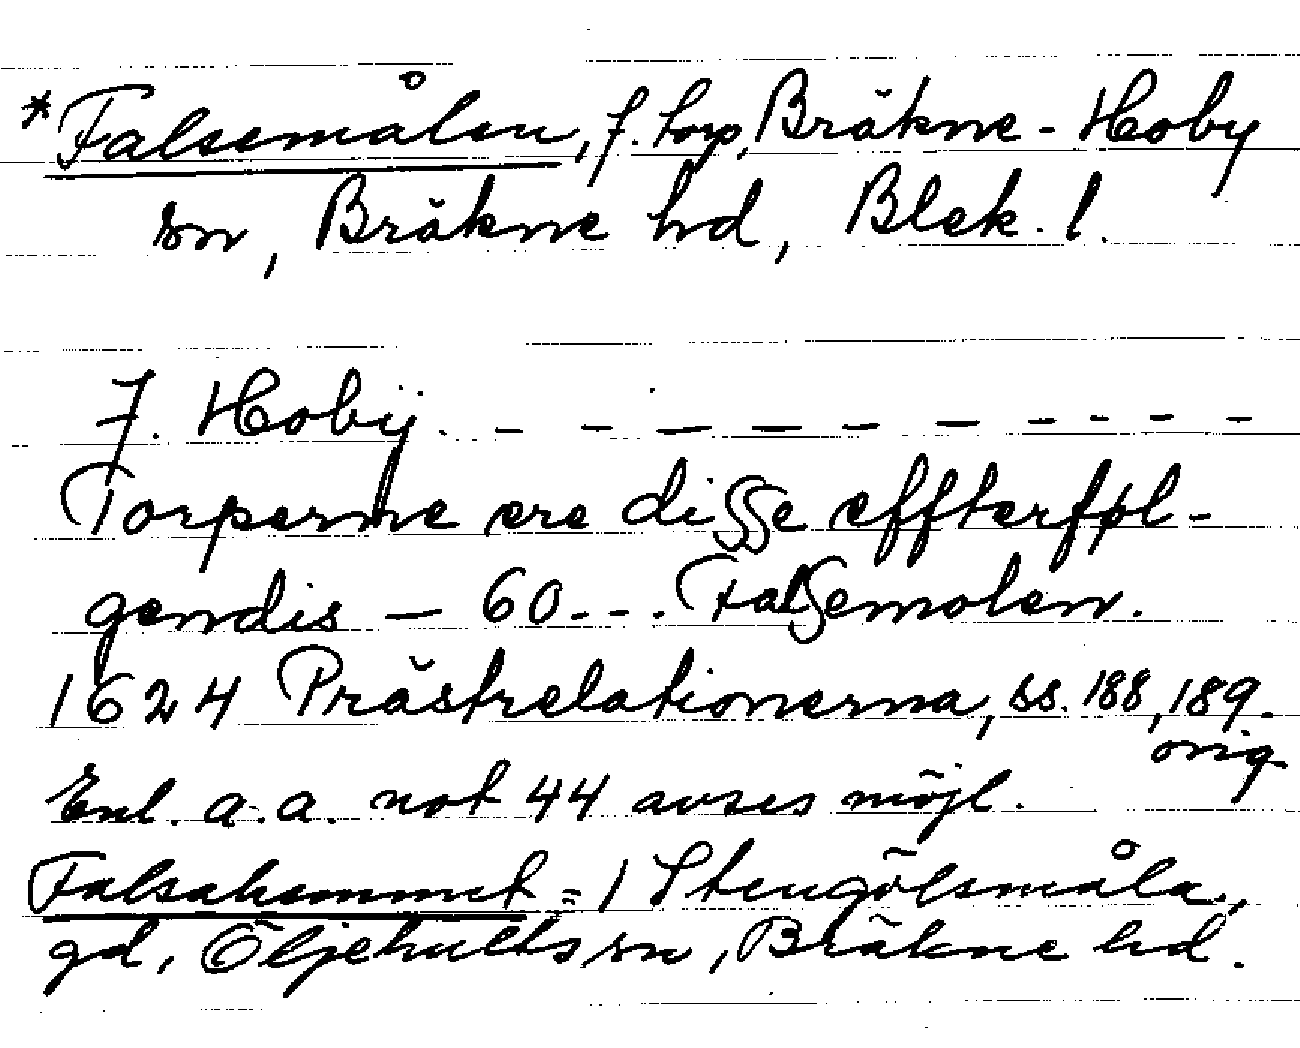 *Falsemålen, f. torp, Bräkne-Hoby
sn, Bräkne hd, Blek. l.
J. Hobÿ. - - - - - - - - -
Torperne ere disse effterføl-
gendis - 60 - - . Falsemolen.
1624 Prästrelationerna, ss. 188, 189.
orig
Enl. a.a. not 44 avses möjl.
Falsahemmet = 1 Stengölsmåla,
gd, Öljehults sn, Bräkne hd.